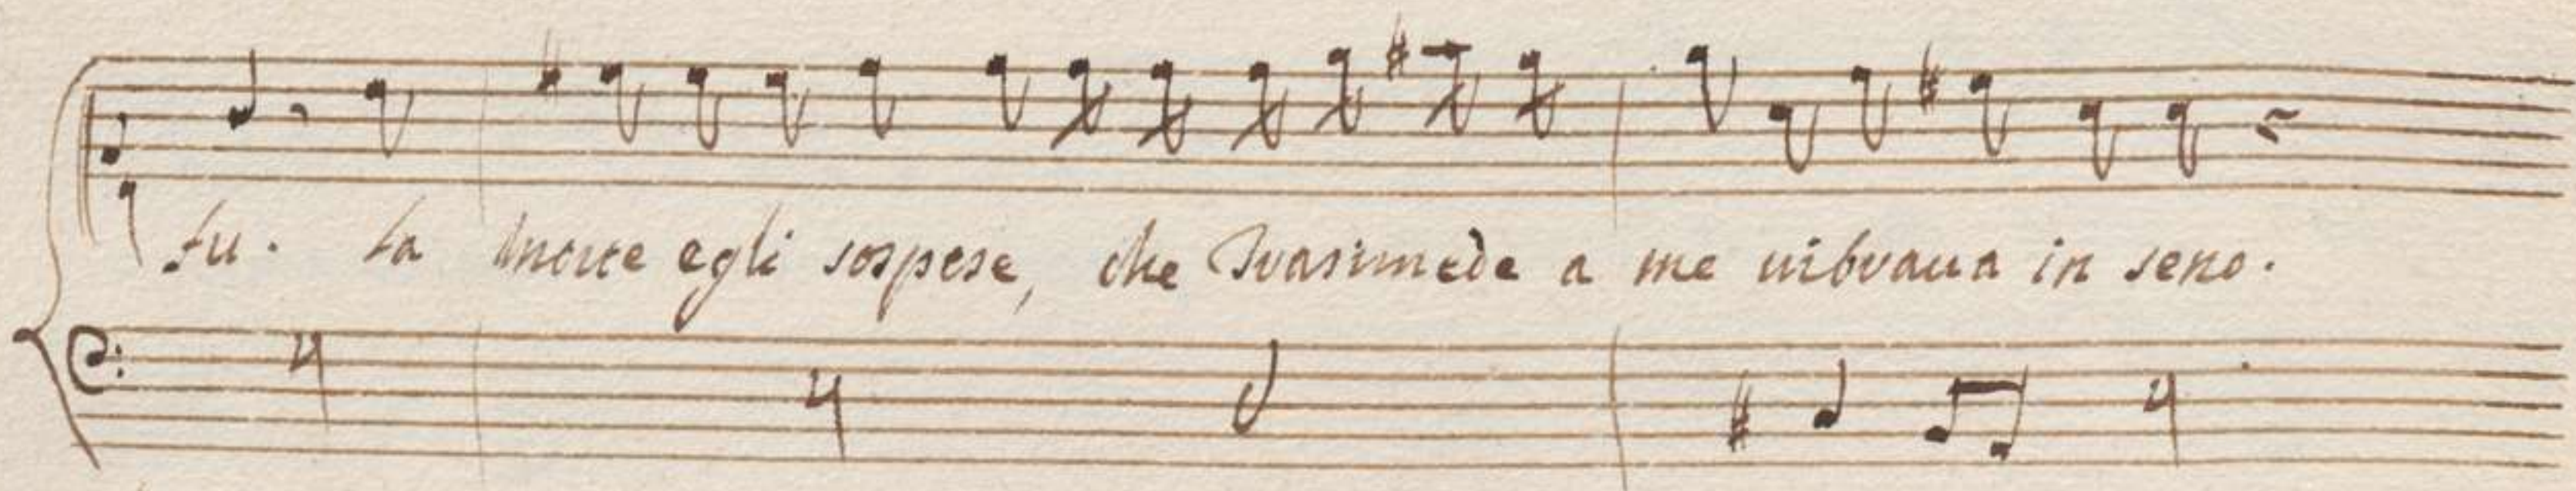 fu. La morte egli sospese, che Trasimede a me uibraua in seno.